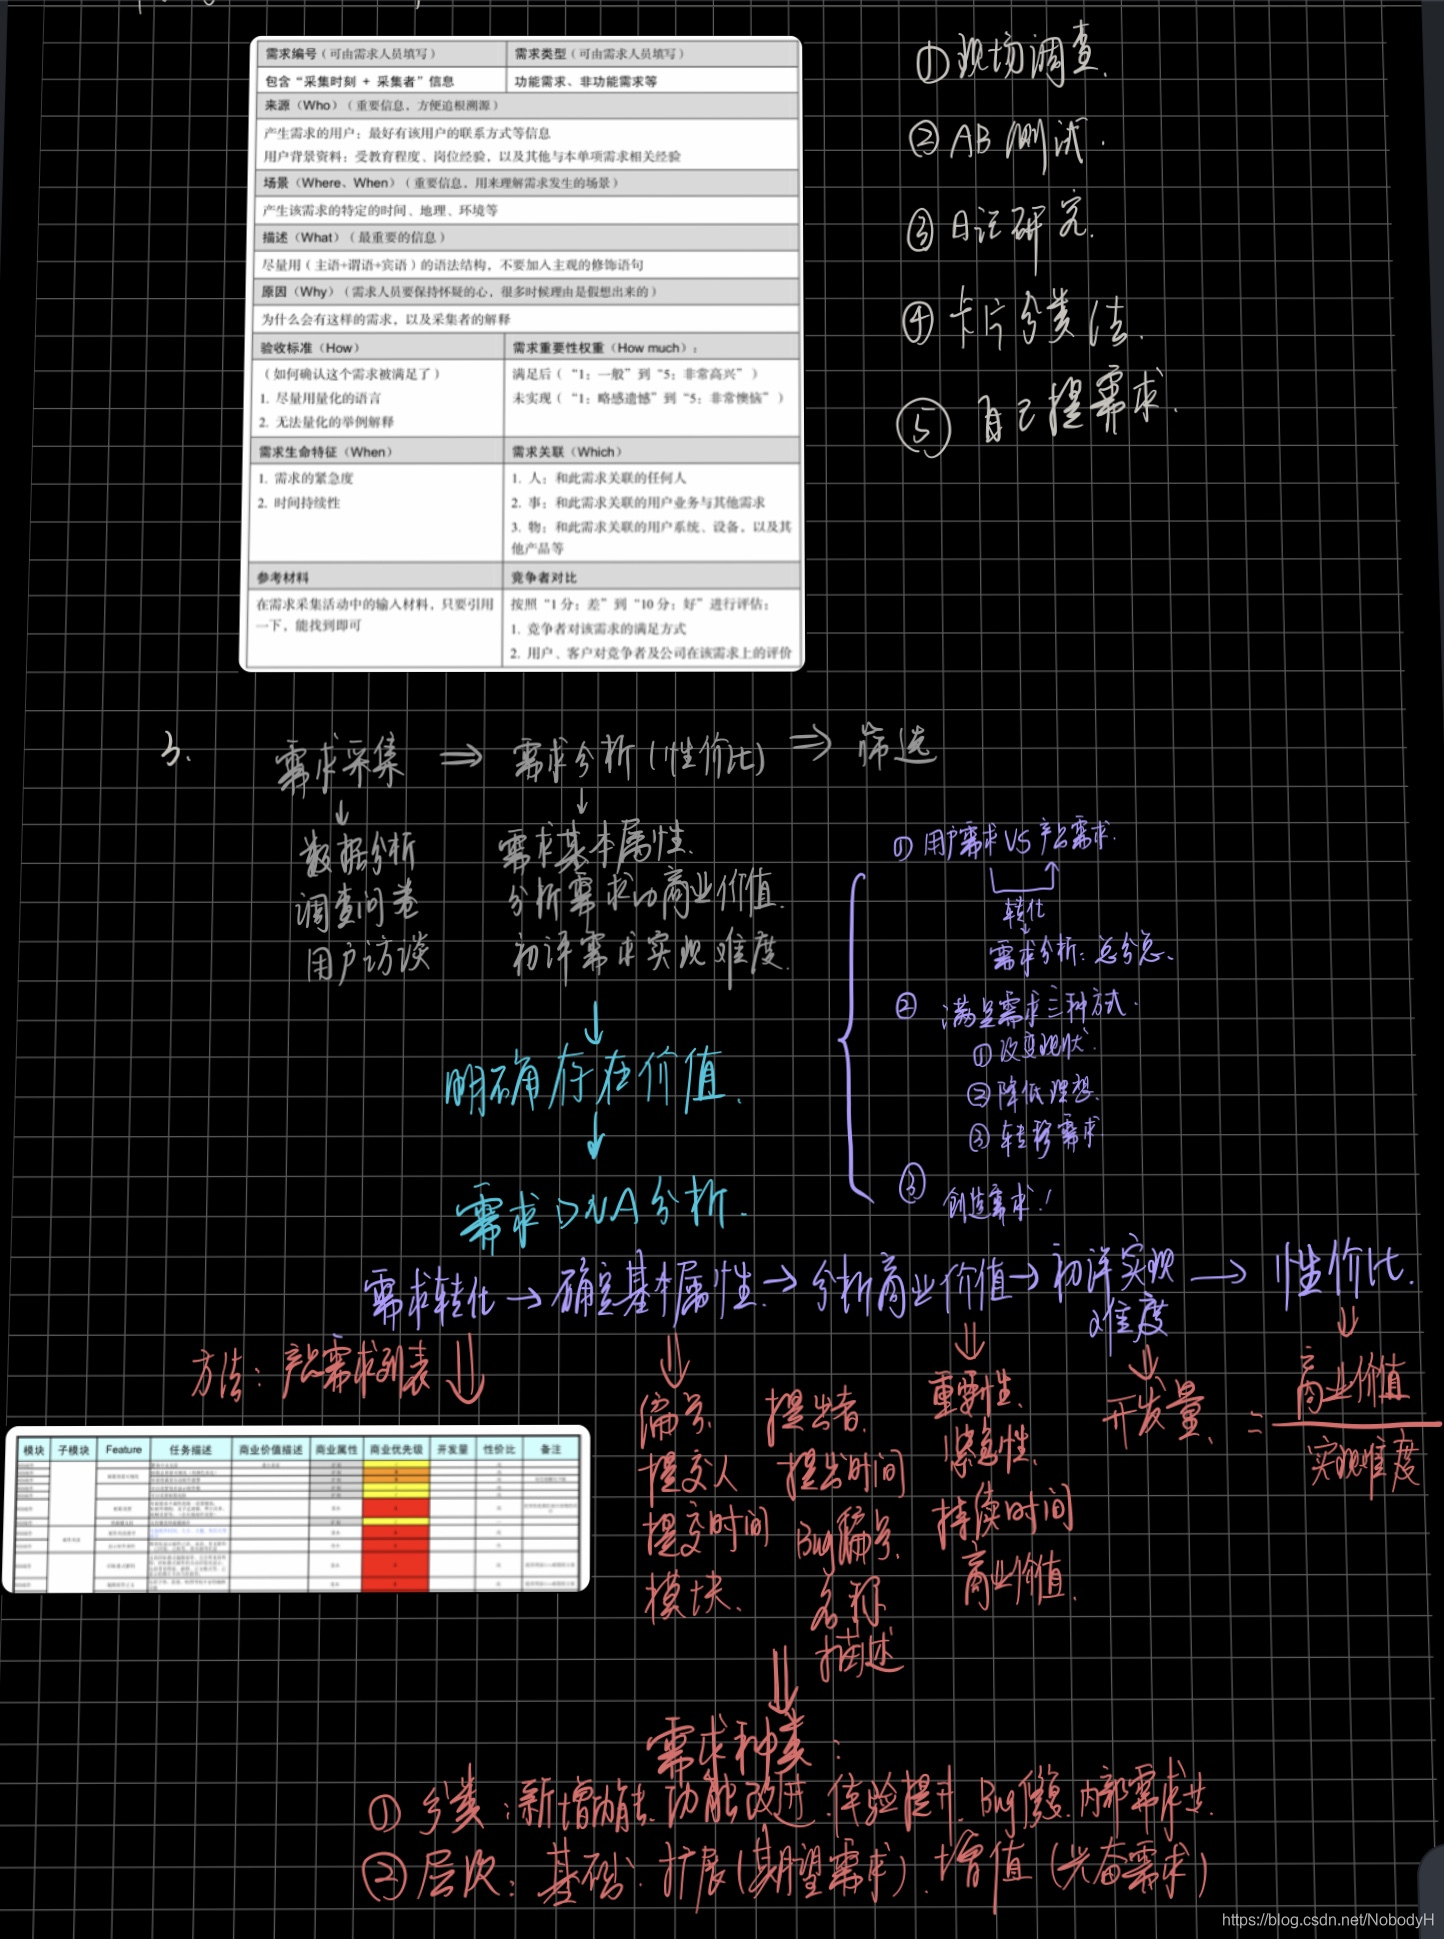 需求编号（可由需求人员填写） 需求类型（可由需求人员填写）
包含“采集时刻 + 采集者”信息 功能需求、非功能需求等
来源（Who）（重要信息，方便追根溯源）
产生需求的用户：最好有该用户的联系方式等信息
用户背景资料：受教育程度、岗位经验，以及其他与本单项需求相关经验
场景（Where、When）（重要信息，用来理解需求发生的场景）
产生该需求的特定的时间、地理、环境等
描述（What）（最重要的信息）
尽量用（主语+谓语+宾语）的语法结构，不要加入主观的修饰语句
原因（Why）（需求人员要保持怀疑的心，很多时候理由是假想出来的）
为什么会有这样的需求，以及采集者的解释
验收标准（How） 需求重要性权重（How much）：
（如何确认这个需求被满足了） 满足后（“1：一般”到“5：非常高兴”）
1. 尽量用量化的语言 未实现（“1：略感遗憾”到“5：非常懊恼”）
2. 无法量化的举例解释
需求生命特征（When） 需求关联（Which）
1. 需求的紧急度 1. 人：和此需求关联的任何人
2. 时间持续性 2. 事：和此需求关联的用户业务与其他需求
3. 物：和此需求关联的用户系统、设备，以及其
他产品等
参考材料 竞争者对比
在需求采集活动中的输入材料，只要引用 按照“1分：差”到“10分：好”进行评估：
一下，能找到即可 1. 竞争者对该需求的满足方式
2. 用户、客户对竞争者及公司在该需求上的评价
① 现场调查.
② AB 测试.
③ 日记研究.
④ 卡片分类法.
⑤ 自己提需求.
3. 需求采集 ⇒ 需求分析(性价比) ⇒ 筛选
↓ ↓
数据分析 需求基本属性.
调查问卷 分析需求的商业价值.
用户访谈 初评需求实现难度.
↓
明确存在价值.
↓
需求DNA分析.
① 用户需求 VS 产品需求.
转化
需求分析: 总分总.
② 满足需求三种方式.
① 改变现状.
② 降低理想.
③ 转移需求
③ 创造需求!
需求转化 → 确定基本属性. → 分析商业价值 → 初评实现 → 性价比.
难度
方法: 产品需求列表
模块 子模块 Feature 任务描述 商业价值描述 商业属性 商业优先级 开发量 性价比 备注
编号. 提出者.
提交人 提出时间
提交时间 Bug编号.
模块. 名称
描述
重要性.
紧急性.
持续时间
商业价值.
开发量.
= 商业价值
实现难度
需求种类:
① 分类: 新增功能. 功能改进. 体验提升. Bug修复. 内部需求.
② 层次: 基础. 扩展(期望需求). 增值 (兴奋需求)
https://blog.csdn.net/NobodyH